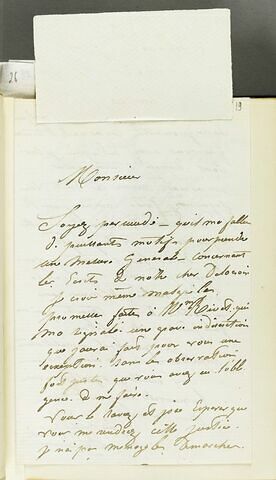 26
19
Monsieur
Soyez persuadé qu'il m'a fallu
de puissants motifs pour prendre
une mesure Generale concernant
les Ecrits de notre cher Delacroix
Je crois même malgré la
promesse faite à Mr Rivet, qui
m'a signalé une grave indiscretion
que j'aurai fait pour vous une
exception. Sans les observations
que vous avez eu l'obli
gence de me faire.
Vous le savez, et j'ose Esperer que
vous me rendrez cette justice
je n'ai pas menagé les demarches